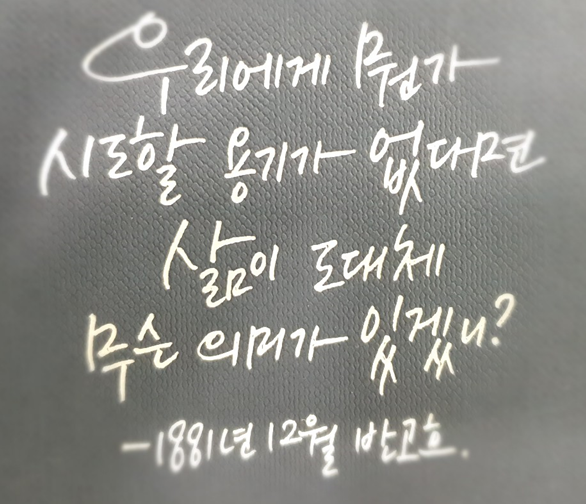 우리에게 뭔가
시도할 용기가 없다면
삶이 도대체
무슨 의미가 있겠니?
-1881년 12월 반고흐.